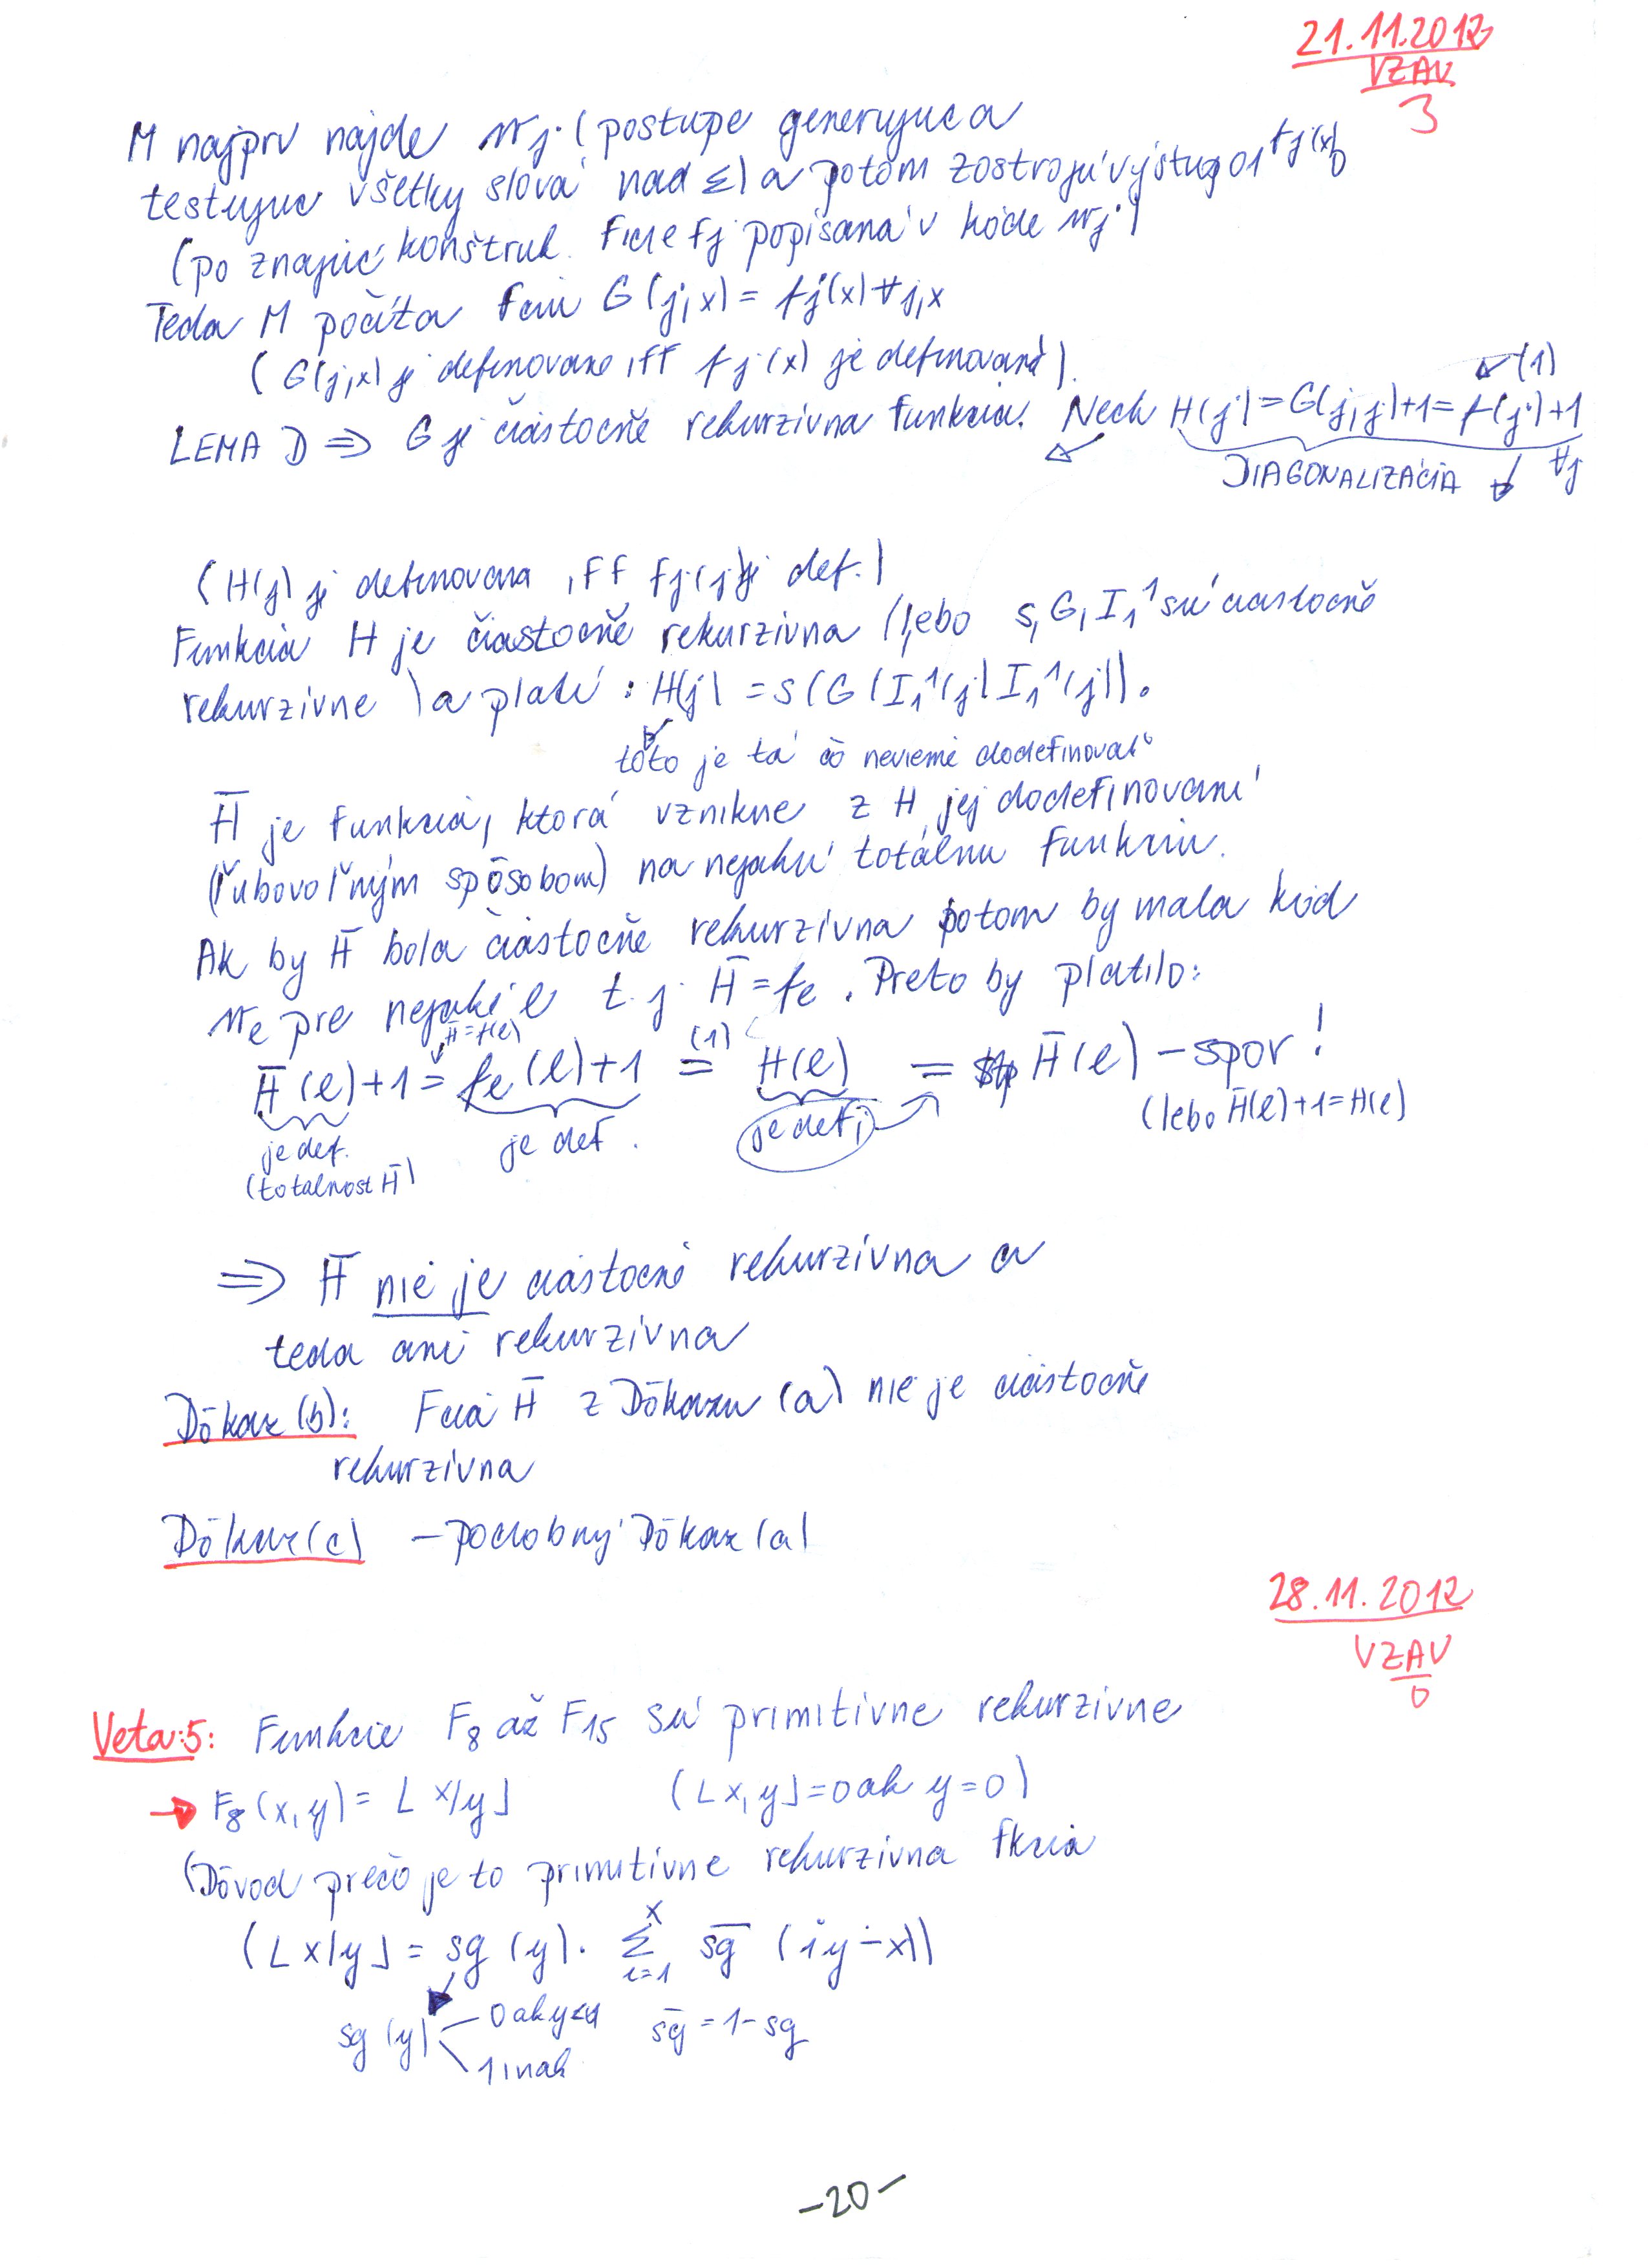 21.11.2012
VZAV
3
M najprv nájde w_j (postupe generujuc a
testujuc všetky slová nad Σ) a potom zostrojí výstup 01^{f_j(x)}0
(po znajúc konštruk. Fcie fj popísaná v kóde w_j)
Teda M počíta fciu G(j,x) = f_j(x) ∀j,x
(G(j,x) je definovane iff f_j(x) je definované).
LEMA D ⇒ G je čiastočně rekurzívna funkcia. Nech H(j)=G(j,j)+1=f(j)+1 ∀j
(1)
DIAGONALIZÁCIA
(H(j) je definovana iff f_j(j) je def.)
Funkcia H je čiastočně rekurzívna (lebo s, G, I_1^1 sú čiastočně
rekurzívne) a platí: H(j) = s(G(I_1^1(j) I_1^1(j))).
toto je tá čo nevieme dodefinovať
H̅ je funkcia, ktorá vznikne z H jej dodefinovaní
(ľubovoľným spôsobom) na nejakú totálnu funkciu.
Ak by H̅ bola čiastočně rekurzívna potom by mala kód
w_e pre nejaké e t.j. H̅ = f_e. Preto by platilo:
H̅=f(e)
H̅(e)+1 = f_e(e)+1 =^{(1)} H(e) = H̅(e) – spor!
je def. je def. je def; (lebo H̅(e)+1=H(e)
(totalnost H̅)
⇒ H̅ nie je čiastočně rekurzívna a
teda ani rekurzívna
Dôkaz (b): Fcia H̅ z Dôkazu (a) nie je čiastočně
rekurzívna
Dôkaz (c) – podobný Dôkaz (a)
28.11.2012
VZAV
0
Veta:5: Funkcie F_8 až F_15 sú primitívne rekurzívne
→ F_8(x,y) = ⌊x/y⌋ (⌊x,y⌋=0 ak y=0)
(Dôvod prečo je to primitívne rekurzívna fkcia
(⌊x/y⌋ = sg(y). Σ_{i=1}^{x} s̅g̅ (iy ∸ x))
sg(y) 0 ak y<1 s̅g̅ = 1-sg
1 inak
-20-